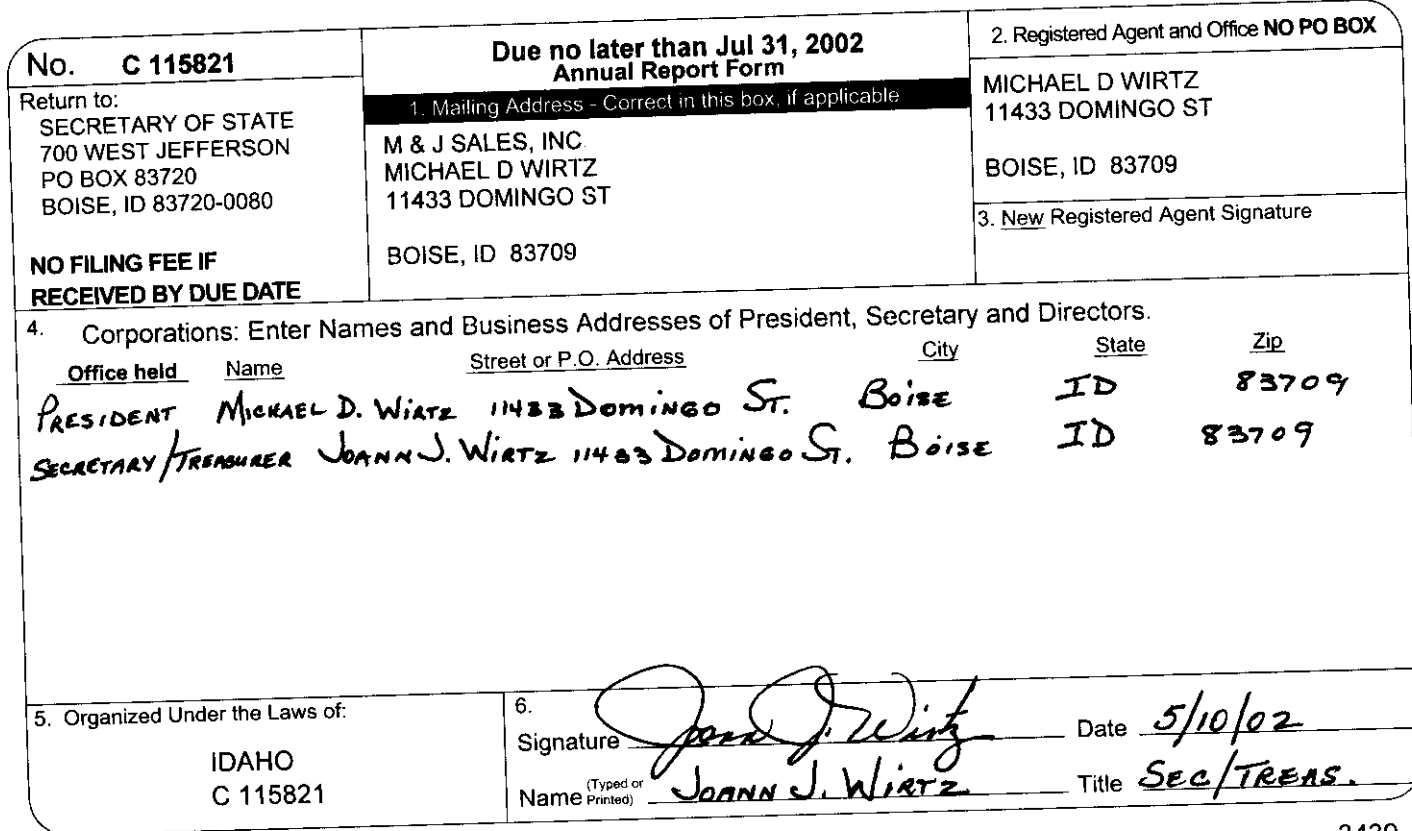 No. C 115821
Return to:
SECRETARY OF STATE
700 WEST JEFFERSON
PO BOX 83720
BOISE, ID 83720-0080
NO FILING FEE IF
RECEIVED BY DUE DATE
Due no later than Jul 31, 2002
Annual Report Form
1. Mailing Address - Correct in this box, if applicable
M & J SALES, INC
MICHAEL D WIRTZ
11433 DOMINGO ST
BOISE, ID 83709
2. Registered Agent and Office NO PO BOX
MICHAEL D WIRTZ
11433 DOMINGO ST
BOISE, ID 83709
3. New Registered Agent Signature
4. Corporations: Enter Names and Business Addresses of President, Secretary and Directors.
Office held Name Street or P.O. Address City State Zip
PRESIDENT MICHAEL D. WIRTZ 11433 DOMINGO ST. BOISE ID 83709
SECRETARY/TREASURER JOANN J. WIRTZ 11433 DOMINGO ST. BOISE ID 83709
5. Organized Under the Laws of:
IDAHO
C 115821
6.
Signature Joann J. Wirtz Date 5/10/02
Name (Typed or Printed) JOANN J. WIRTZ Title SEC/TREAS.